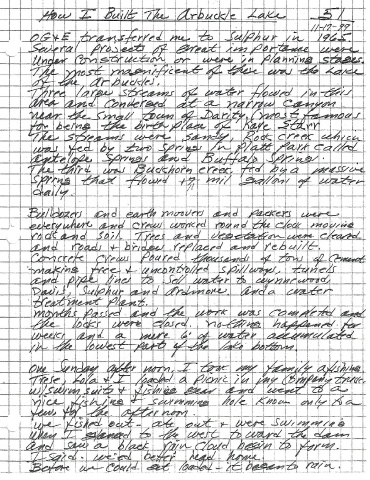 How I Built The Arbuckle Lake 5
11-17-99
OG&E transferred me to Sulphur in 1965
Several projects of great importance were
Under Construction or were in Planning stages.
The most magnificent of these was the Lake
of the Arbuckles
Three large streams of water flowed in this
area and converged at a narrow canyon
near the small town of Daugherty (most famous
for being the birth place of Kaye Starr
The streams were Sandy, Rock creek which
was fed by two springs in Platt Park called
Antelope Springs and Buffalo Springs.
The third was Buckhorn creek fed by a massive
Spring that flowed mil gallons of water
daily.
Bulldozers and earth moovers and Packers were
everywhere and crews worked round the clock moving
rock and soil. Trees and vegetation were cleared
and roads & bridges replaced and rebuilt.
Concrete crews Poured thousands of tons of cement
making free & uncontrolled spillways, tunnels
and pipe lines to sell water to Wynnewood,
Davis, Sulphur and Ardmore and a water
treatment plant.
Months passed and the work was completed and
the locks were closed. nothing happened for
weeks and a mere 6' of water accumulated
in the lowest part of the lake bottom.
One Sunday after noon, I took my family afishing
Trese, Lola & I loaded a Picnic in my Company truck
w/swim suits & fishing gear and went to a
nice fishing & swimming hole known only to a
few for the afternoon.
we fished out - ate out & were swimming
when I glanced to the west toward the dam
and saw a black rain cloud begin to form.
I said. we'ed better head home.
Before we could get loaded - it began to rain.